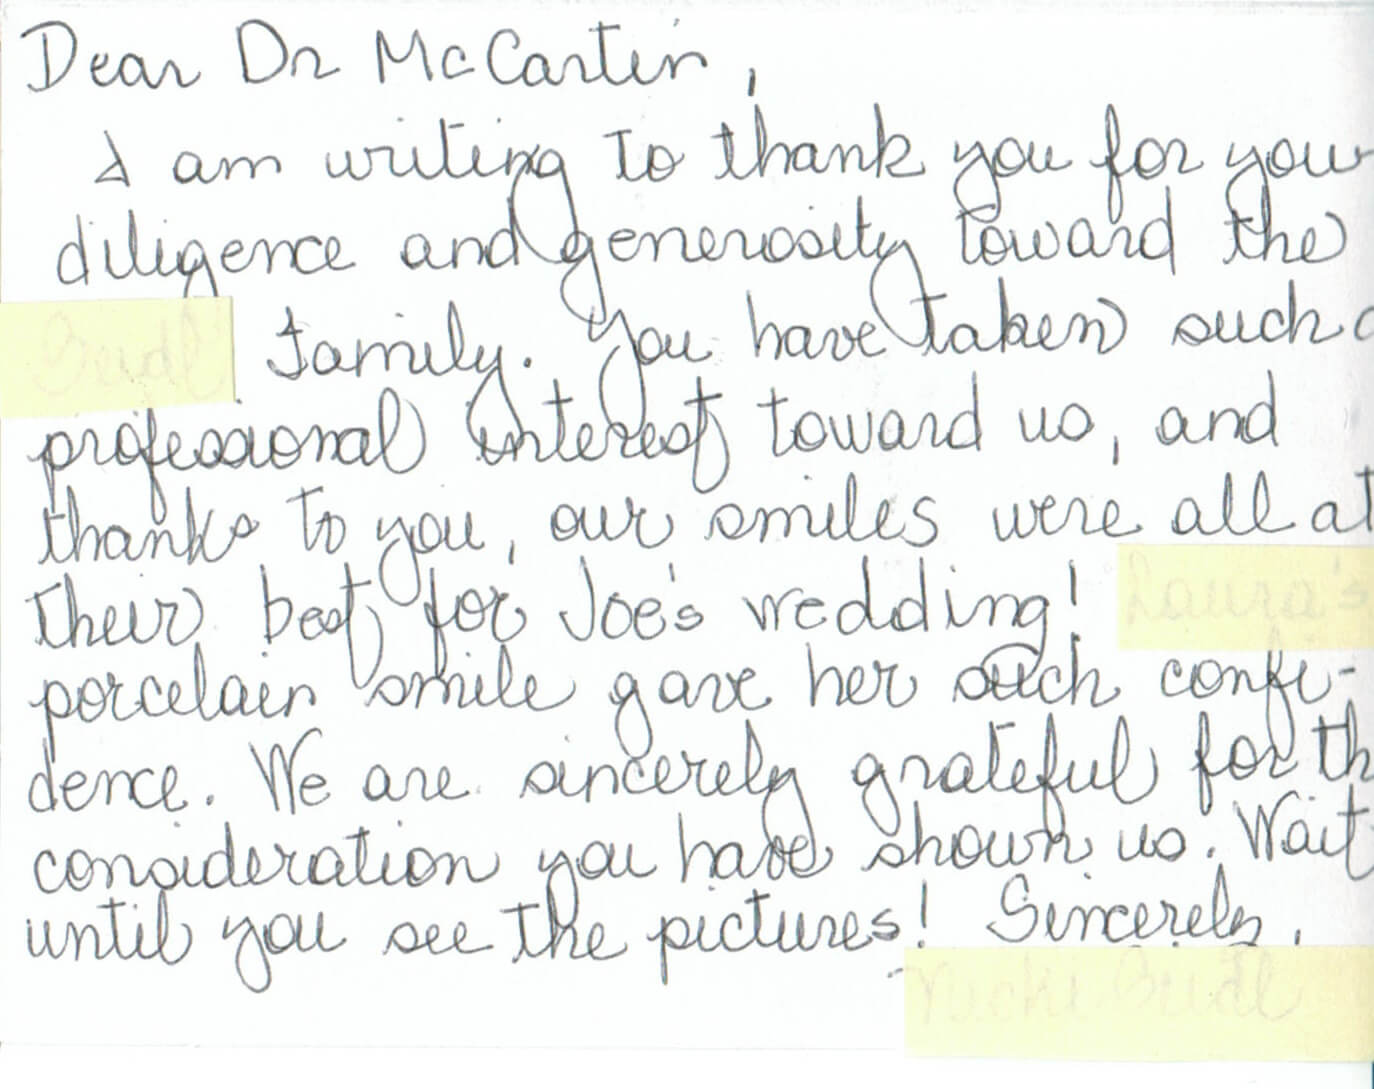 Dear Dr McCartin,
I am writing to thank you for your
diligence and generosity toward the
family. You have taken such a
professional interest toward us, and
thanks to you, our smiles were all at
their best for Joe's wedding!
porcelain smile gave her such confi-
dence. We are sincerely grateful for th
consideration you have shown us. Wait
until you see the pictures! Sincerely,